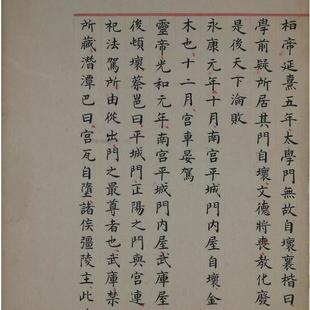 桓帝延熹五年太學門無故自壞襄楷曰
學前疑所居其門自壞文德將喪教化廢
是後天下淪敗
永康元年十月南宮平城門內屋自壞金
木也十二月宮車晏駕
靈帝光和元年南宮平城門內屋武庫屋
後頓壞蔡邕曰平城門正陽之門與宮連
祀法駕所由從出門之最尊者也武庫禁
所藏潛潭巴曰宮瓦自墮諸侯彊陵主此